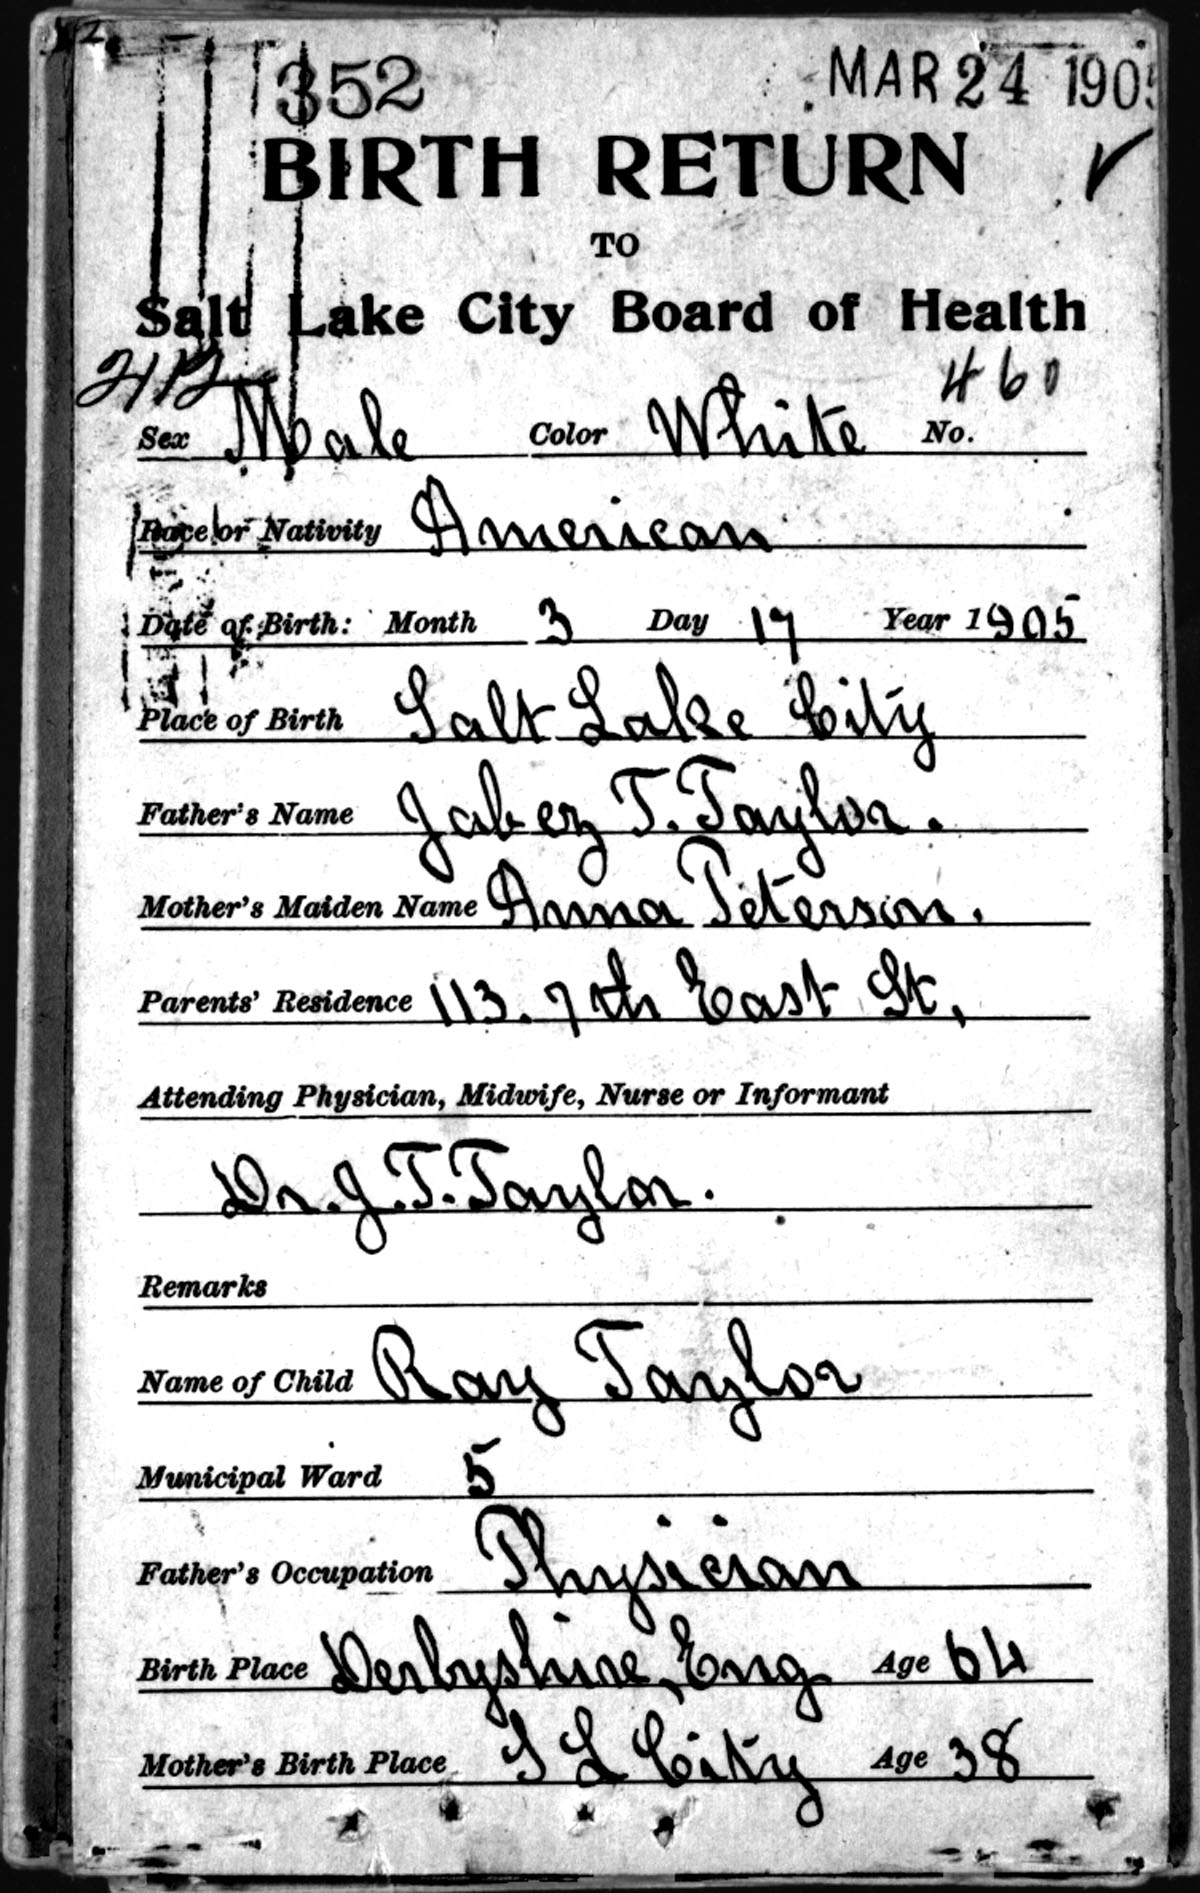 352 MAR 24 1905
BIRTH RETURN
TO
Salt Lake City Board of Health
460
Sex Male Color White No.
Race or Nativity American
Date of Birth: Month 3 Day 17 Year 1905
Place of Birth Salt Lake City
Father's Name Jabez T. Taylor.
Mother's Maiden Name Anna Peterson.
Parents' Residence 113. 7th East St,
Attending Physician, Midwife, Nurse or Informant
Dr. J. T. Taylor.
Remarks
Name of Child Ray Taylor
Municipal Ward 5
Father's Occupation Physician
Birth Place Derbyshire, Eng Age 64
Mother's Birth Place S L City Age 38